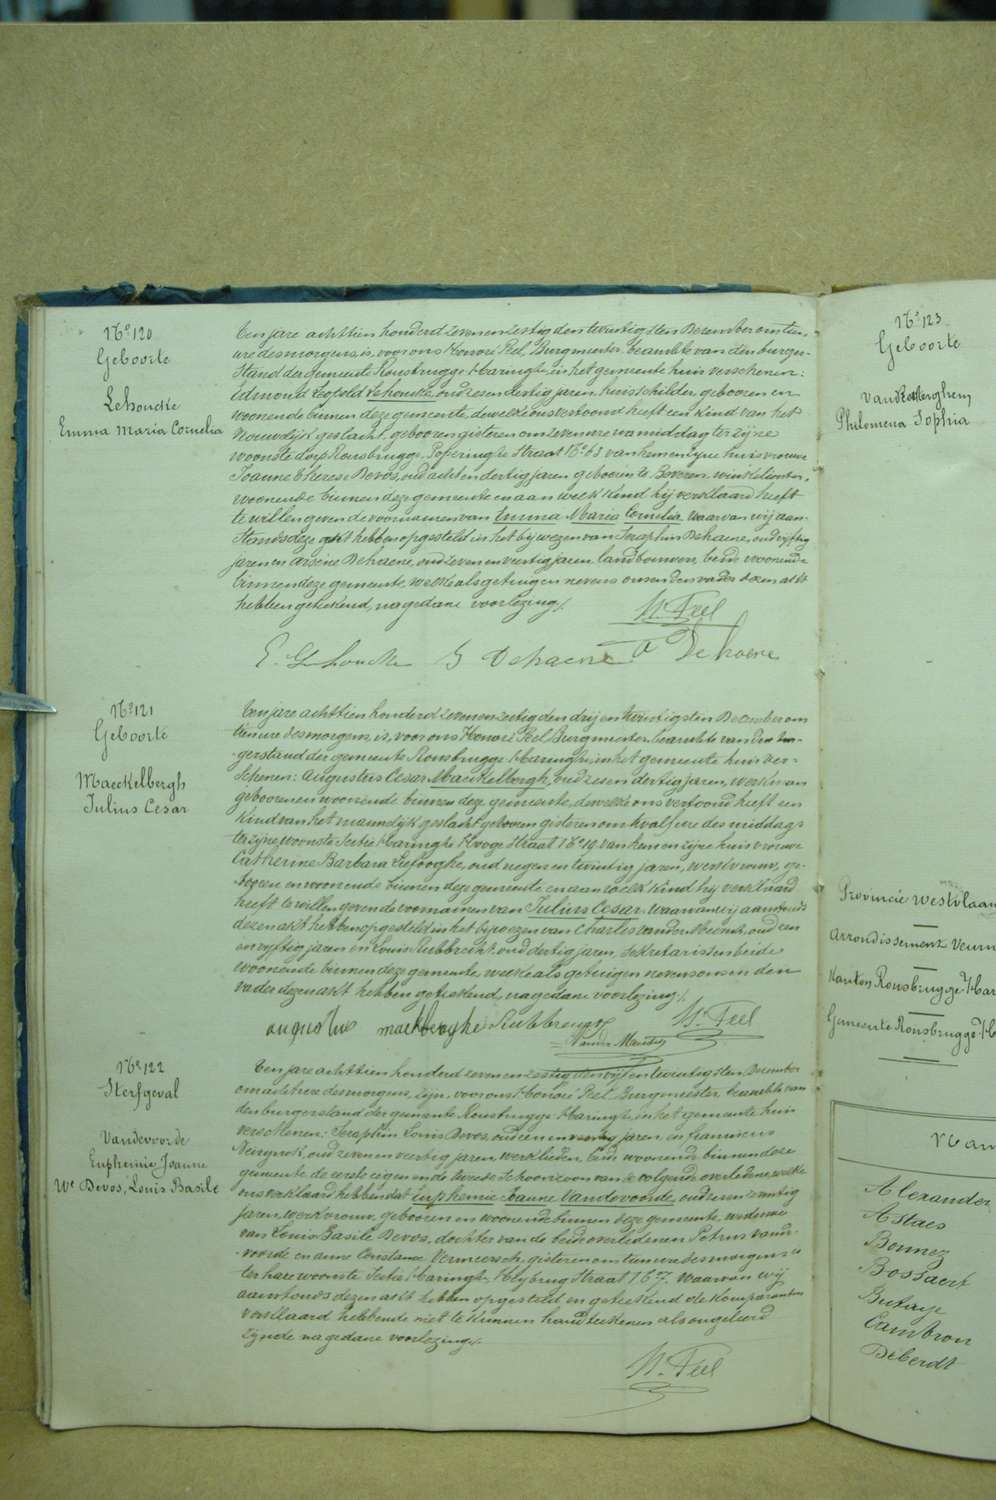 N° 120
Geboorte
Lehoucke
Emma Maria Cornelia
Ten jare achttien honderd zevenenzestig den twintigsten December om tien
ure des morgens, is, voor ons Honoré Peel, Burgmeester, beambte van den burger-
stand der gemeente Rousbrugge-Haringhe, in het gemeente huis verschenen:
Edmond Leopold Lehoucke, oud zesendertig jaren, huisschilder, geboren en
woonende binnen deze gemeente, dewelke ons vertoond heeft een kind van het
vrouwelijk geslacht, geboren gisteren om zeven ure namiddag ter zijne
woonste dorp Rousbrugge, Poperinghe Straat N° 63 van hem en zijne huisvrouw
Joanne Therese Devos, oud achtendertig jaren geboren te Beveren, winkelierster,
woonende binnen deze gemeente en aan welk kind hij verklaard heeft
te willen geven de voornamen van Emma Maria Cornelia. Waarvan wij aan-
stonds deze akt hebben opgesteld in het bijwezen van Seraphin Dehaene, oud vijftig
jaren en Arsène Dehaene, oud zeven en veertig jaren, landbouwers, beide woonende
binnen deze gemeente, welke als getuigen nevens ons en den vader dezen akt
hebben geteekend, na gedane voorlezing.
H. Peel
E. L. Lehoucke S Dehaene A Dehaene
N° 121
Geboorte
Maeckelbergh
Julius Cesar
Ten jare achttien honderd zevenenzestig den drij en twintigsten December om
tien ure des morgens, is, voor ons Honoré Peel, Burgmeester, beambte van den bur-
gerstand der gemeente Rousbrugge-Haringhe, in het gemeente huis ver-
schenen: Augustus Cesar Maeckelbergh, oud zesendertig jaren, werkman
geboren en woonende binnen deze gemeente, dewelke ons vertoond heeft een
kind van het mannelijk geslacht geboren gisteren om half ure des middags
ter zijne woonste sectie Haringhe Hooge Straat N° 10 van hem en zijne huisvrouw
Catherine Barbara Liefooghe, oud negen en twintig jaren, werkvrouw, ge-
boren en woonende binnen deze gemeente en aan welk kind hij verklaard
heeft te willen geven de voornamen van Julius Cesar. Waarvan wij aanstonds
dezen akt hebben opgesteld in het bijwezen van Charles Vander Meersch, oud een
en vijftig jaren en Louis Rubbrecht, oud dertig jaren, sekretarissen beide
woonende binnen deze gemeente welke als getuigen nevens ons en den
vader dezen akt hebben geteekend, na gedane voorlezing.
augustus maekberghe H. Peel
N° 122
Sterfgeval
Vandevoorde
Euphemie Joanne
We Devos, Louis Basile
Ten jare achttien honderd zevenenzestig den vijf en twintigsten December
om acht ure des morgens, zijn, voor ons Honoré Peel, Burgmeester, beambte van
den burgerstand der gemeente Rousbrugge-Haringhe, in het gemeente huis
verschenen: Seraphin Louis Devos, oud een en veertig jaren en Franciscus
Neirynck, oud zeven en veertig jaren, werklieden, beide woonende binnen deze
gemeente de eerste eigen en de tweede schoonzoon van de volgende overledene, welke
ons verklaard hebben dat Euphemie Joanne Vandevoorde, oud zeven en zeventig
jaren, werkvrouw, geboren en woonende binnen deze gemeente, weduwe
van Louis Basile Devos, dochter van de beide overledenen Petrus Vande-
voorde en Anne Constance Vermeersch, gisteren om tien ure des morgens is
ter hare woonste sectie Haringhe, Kleybrug Straat N° 7. Waarvan wij
aanstonds dezen akt hebben opgesteld en geteekend de komparanten
verklaard hebbende niet te kunnen handteekenen als ongeleerd
zijnde na gedane voorlezing.
H. Peel
N° 123
Geboorte
Vandekerlerghem
Philomena Sophia
Provincie Westvlaan
Arrondissement Veurn
Kanton Rousbrugge-Har
Gemeente Rousbrugge-H
Nam
Alexander
Astaes
Bonnez
Bossaert
Butaye
Cambron
Deberdt